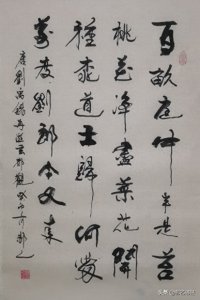 百畝庭中半是苔
桃花淨盡菜花開
種桃道士歸何處
前度劉郎今又来
唐劉禹錫再遊玄都觀